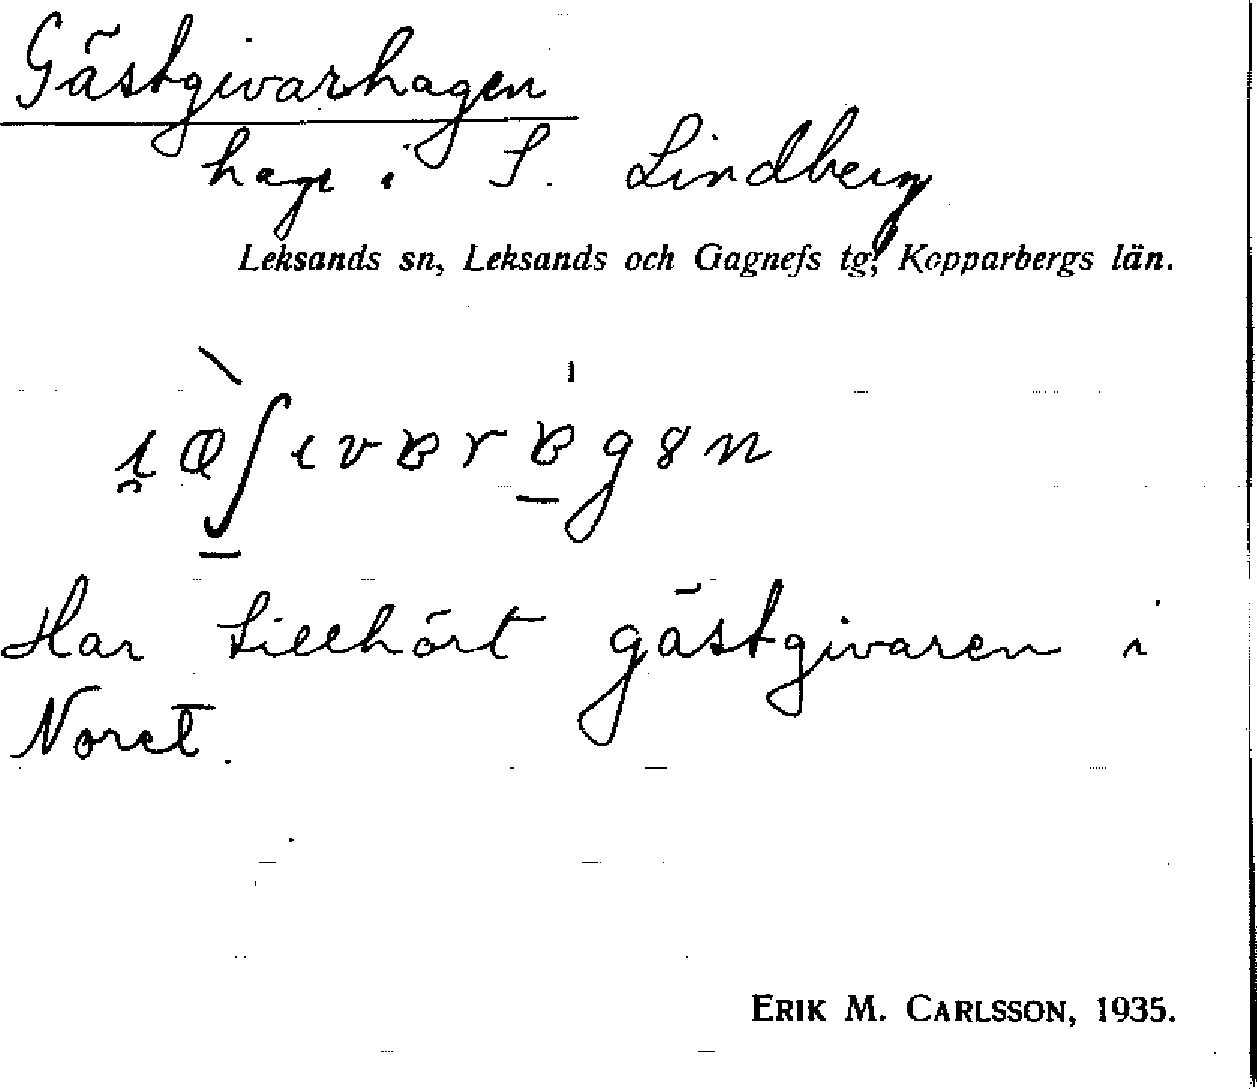 Gästgivarhagen
hage i S. Lindberg
Leksands sn, Leksands och Gagnefs tg, Kopparbergs län.
Har tillhört gästgivaren i
Noret.
ERIK M. CARLSSON, 1935.